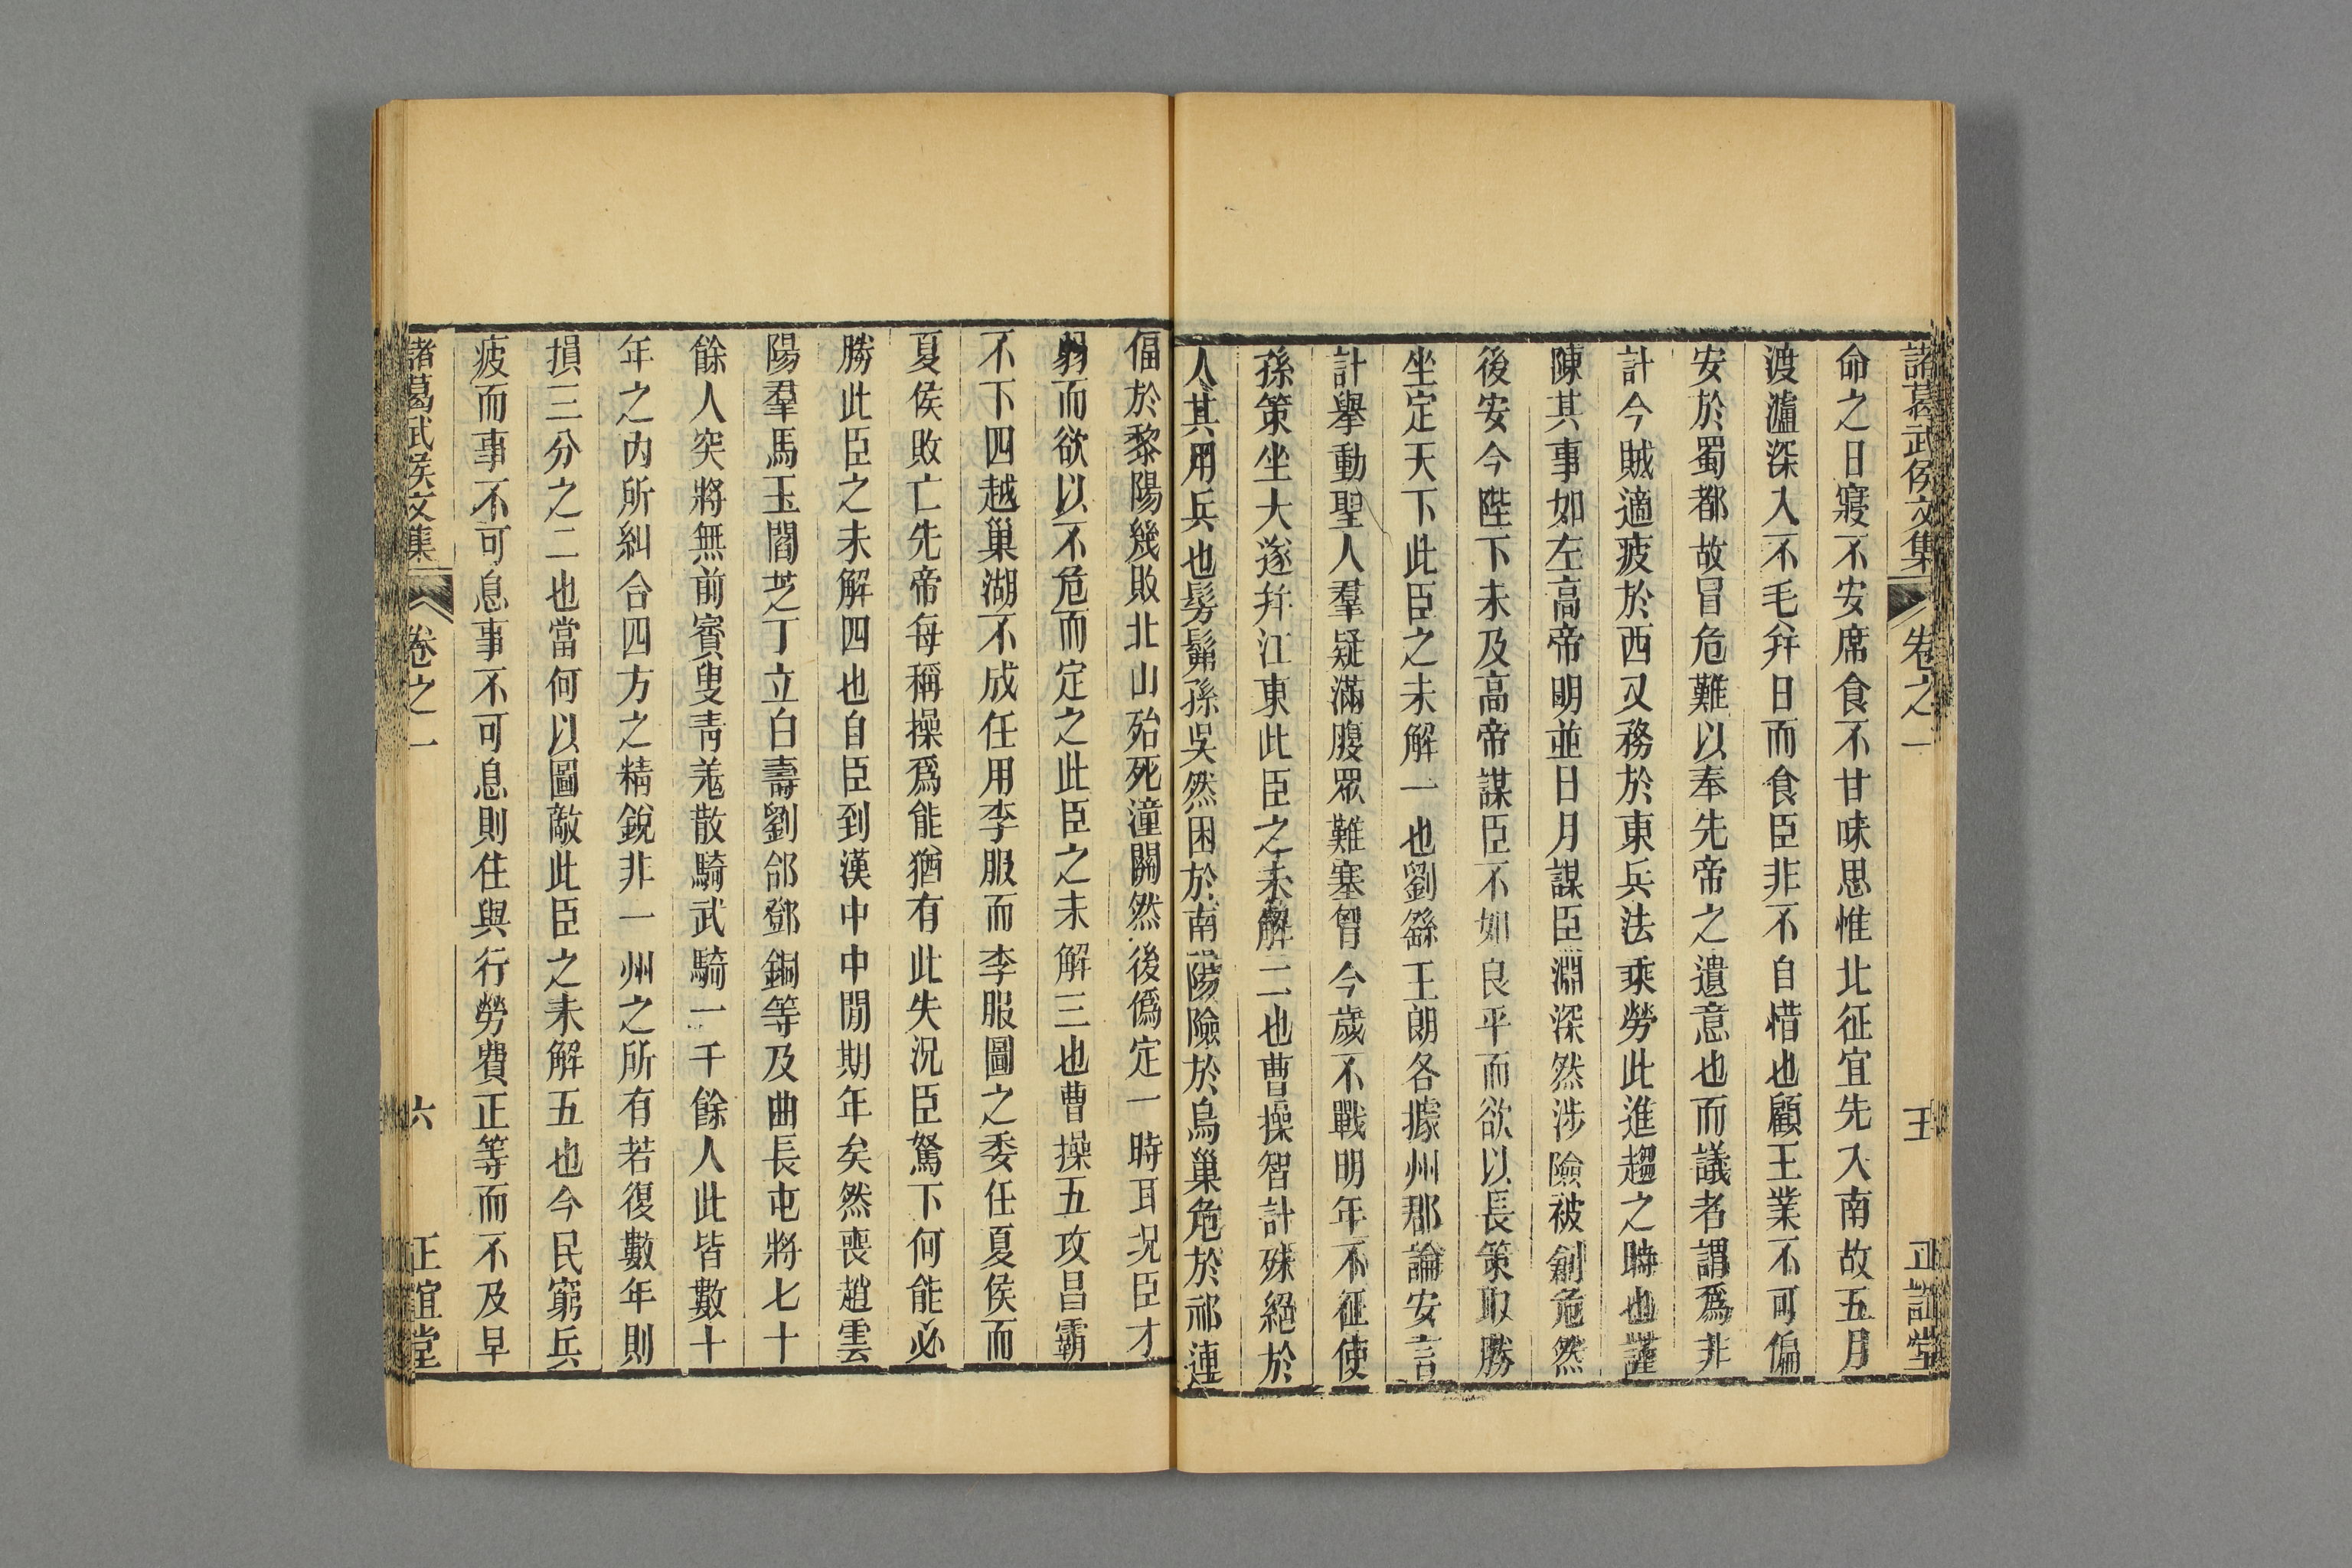 諸葛武侯文集 卷之一 五 正誼堂
命之日寢不安席食不甘味思惟北征宜先入南故五月
渡瀘深入不毛幷日而食臣非不自惜也顧王業不可偏
安於蜀都故冒危難以奉先帝之遺意也而議者謂爲非
計今賊適疲於西又務於東兵法乘勞此進趨之時也謹
陳其事如左高帝明並日月謀臣淵深然涉險被創危然
後安今陛下未及高帝謀臣不如良平而欲以長策取勝
坐定天下此臣之未解一也劉繇王朗各據州郡論安言
計舉動聖人羣疑滿腹眾難塞胷今歲不戰明年不征使
孫策坐大遂幷江東此臣之未解二也曹操智計殊絕於
人其用兵也髣髴孫吳然困於南陽險於烏巢危於祁連
偪於黎陽幾敗北山殆死潼關然後僞定一時耳況臣才
弱而欲以不危而定之此臣之未解三也曹操五攻昌霸
不下四越巢湖不成任用李服而李服圖之委任夏侯而
夏侯敗亡先帝每稱操爲能猶有此失況臣駑下何能必
勝此臣之未解四也自臣到漢中中閒期年矣然喪趙雲
陽羣馬玉閻芝丁立白壽劉郃鄧銅等及曲長屯將七十
餘人突將無前賓叟靑羌散騎武騎一千餘人此皆數十
年之內所糾合四方之精銳非一州之所有若復數年則
損三分之二也當何以圖敵此臣之未解五也今民窮兵
疲而事不可息事不可息則住與行勞費正等而不及早
諸葛武侯文集 卷之一 六 正誼堂